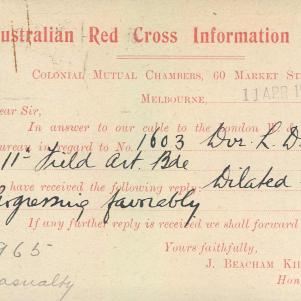 ustralian Red Cross Information
Colonial Mutual Chambers, 60 Market St
Melbourne, 11 APR 1
ear Sir,
In answer to our cable to the London
ureau in regard to No. 1603 Dvr. L. D
11th Field Art. Bde
have received the following reply Dilated
rogressing favorably
If any further reply is received we shall forward
Yours faithfully,
J. BEACHAM KI
Hon
965
asualty